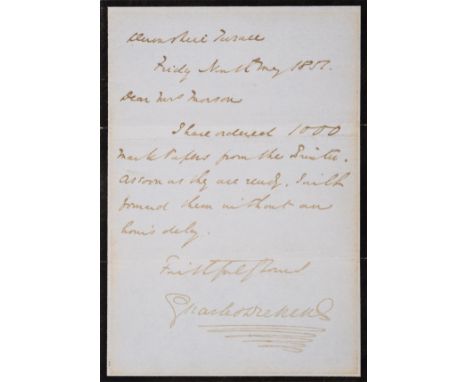 Devonshire Terrace
Friday Ninth May 1851.
Dear Mrs Morson
I have ordered 1000
Mark Papers from the Printer.
As soon as they are ready, I will
forward them without an
hour's delay.
Faithfully Yours
Charles Dickens